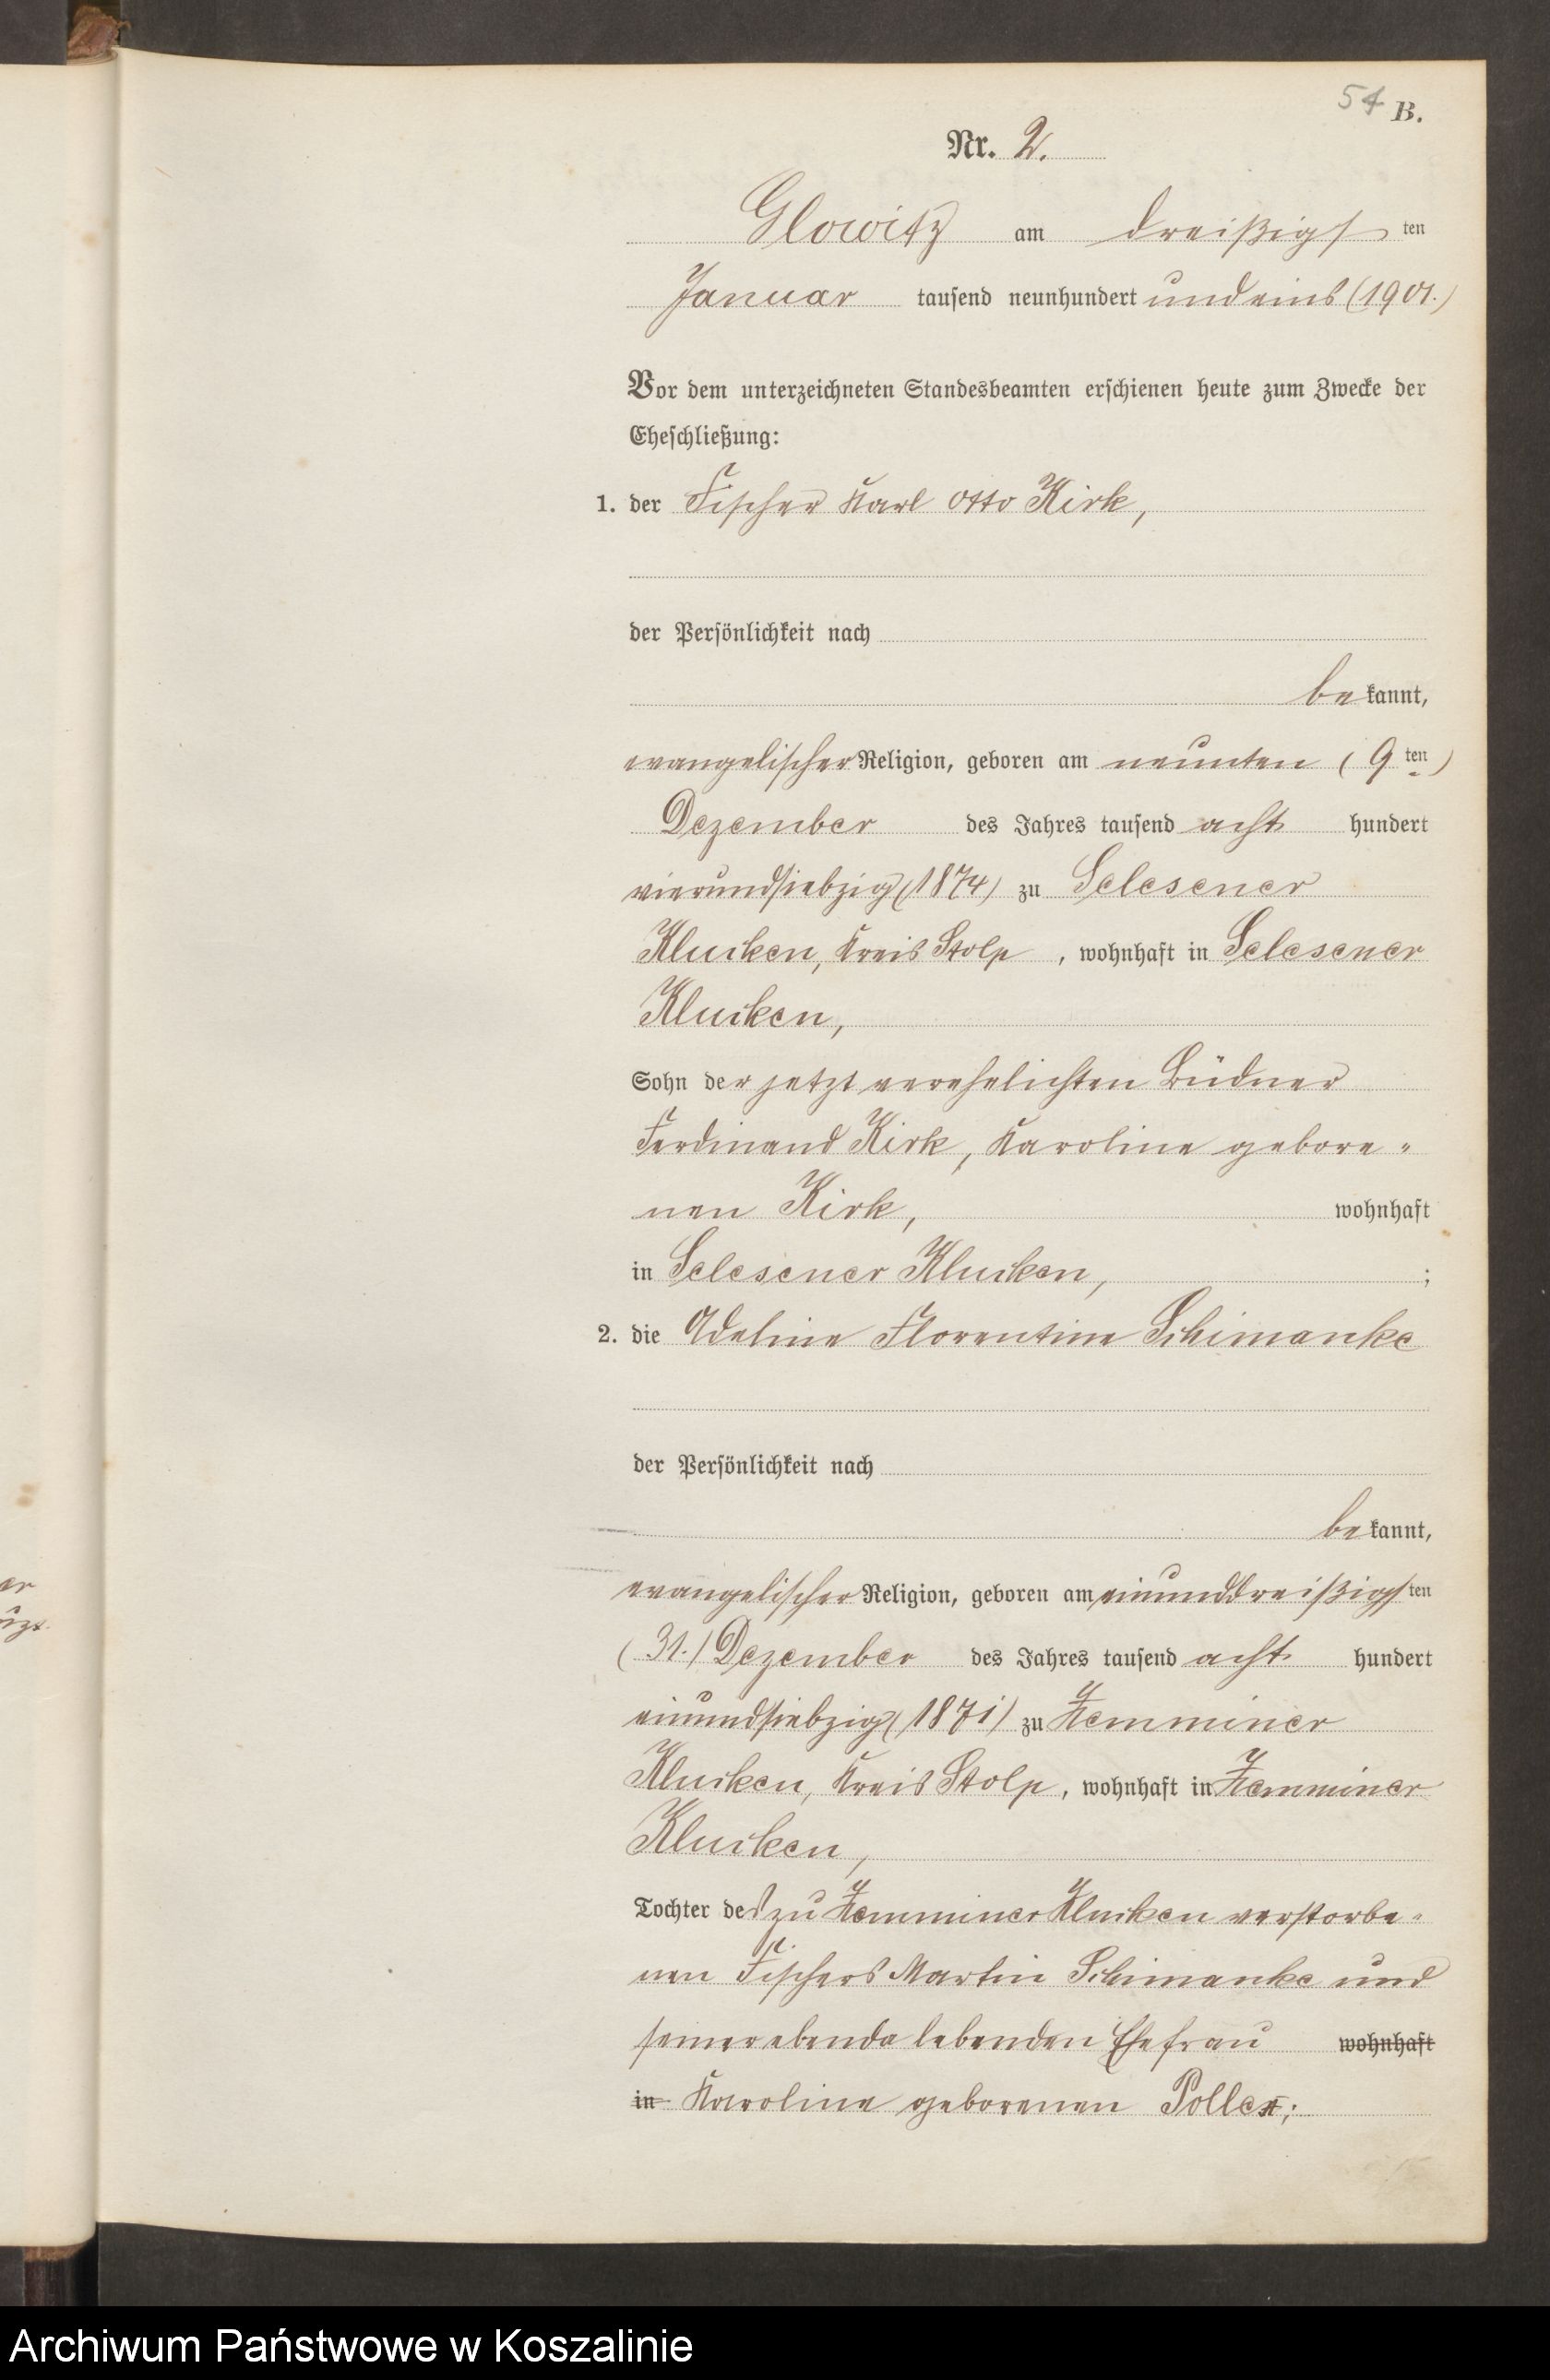 54 B.
Nr. 2.
Glowitz am dreißigsten
Januar tausend neunhundert und eins (1901.)
Vor dem unterzeichneten Standesbeamten erschienen heute zum Zwecke der
Eheschließung:
1. der Fischer Karl Otto Kirk,
der Persönlichkeit nach
bekannt,
evangelischer Religion, geboren am neunten (9ten)
Dezember des Jahres tausend acht hundert
vierundsiebzig (1874) zu Selesener
Klucken, Kreis Stolp, wohnhaft in Selesener
Klucken,
Sohn der jetzt verehelichten Büdner
Ferdinand Kirk, Karoline gebore-
nen Kirk, wohnhaft
in Selesener Klucken, ;
2. die Adeline Florentine Schimanke
der Persönlichkeit nach
bekannt,
evangelischer Religion, geboren am einunddreißigsten
(31.) Dezember des Jahres tausend acht hundert
einundsiebzig (1871) zu Zemminer
Klucken, Kreis Stolp, wohnhaft in Zemminer
Klucken,
Tochter des zu Zemminer Klucken verstorbe-
nen Fischers Martin Schimanke und
seiner ebenda lebenden Ehefrau wohnhaft
in Karoline geborenen
er
Archiwum Państwowe w Koszalinie